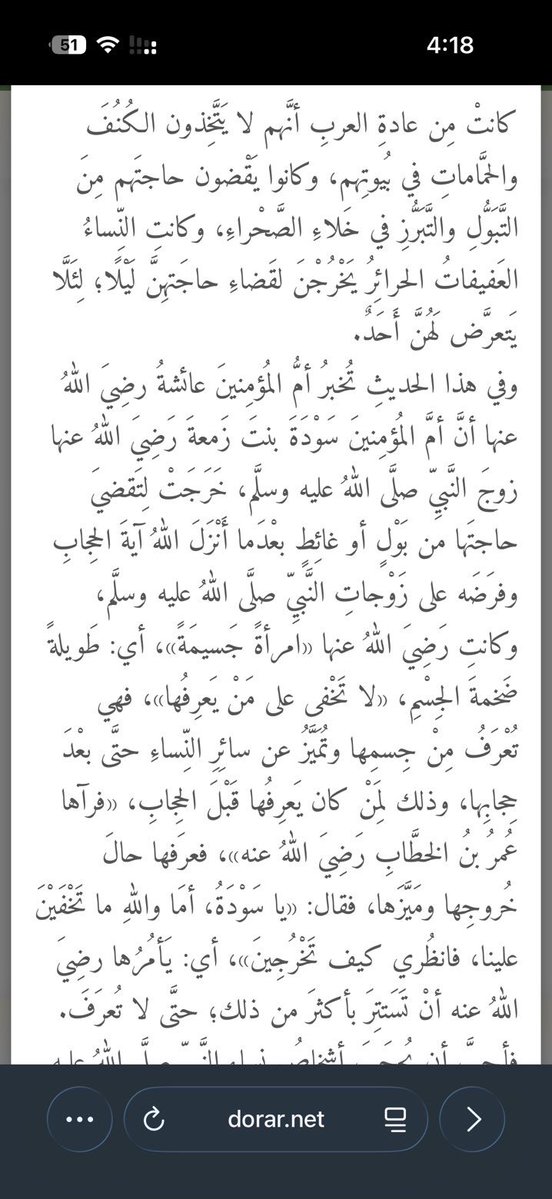 51
4:18
كانتْ مِن عادةِ العربِ أنَّهم لا يَتَّخِذون الكُنُفَ
والحمَّاماتِ في بُيوتِهم، وكانوا يَقْضون حاجتَهم مِنَ
التَّبَوُّلِ والتَّبَرُّزِ في خَلاءِ الصَّحْراءِ، وكانتِ النِّساءُ
العَفيفاتُ الحرائِرُ يَخْرُجْنَ لقَضاءِ حاجَتِهنَّ لَيْلًا؛ لِئَلَّا
يَتعرَّض لَهُنَّ أَحَدٌ.
وفي هذا الحديثِ تُخبرُ أمُّ المُؤمِنينَ عائشةُ رضِيَ اللهُ
عنها أنَّ أمَّ المُؤمِنينَ سَوْدَةَ بنتَ زَمعةَ رَضِيَ اللهُ عنها
زوجَ النَّبيِّ صلَّى اللهُ عليه وسلَّم، خَرَجَتْ لِتَقضيَ
حاجتَها من بَوْلٍ أو غائِطٍ بعْدَما أَنْزَلَ اللهُ آيةَ الحِجابِ
وفرَضَه على زَوْجاتِ النَّبيِّ صلَّى اللهُ عليه وسلَّم،
وكانتِ رَضِيَ اللهُ عنها «امرأةً جَسيمَةً»، أي: طَويلةً
ضَخمةَ الجِسْمِ، «لا تَخْفى على مَنْ يَعرِفُها»، فهي
تُعْرَفُ مِنْ جِسمِها وتُمَيَّزُ عن سائِرِ النِّساءِ حتَّى بعْدَ
حِجابِها، وذلك لِمَنْ كان يَعرِفُها قَبْلَ الحِجابِ، «فرآها
عُمرُ بنُ الخطَّابِ رَضِيَ اللهُ عنه»، فعرَفها حالَ
خُروجِها ومَيَّزَها، فقال: «يا سَوْدَةُ، أمَا واللهِ ما تَخْفَيْنَ
علينا، فانظُري كيف تَخْرُجِينَ»، أي: يَأمُرُها رضِيَ
اللهُ عنه أنْ تَسَتترَ بأكثرَ من ذلك؛ حتَّى لا تُعرَفَ.
dorar.net